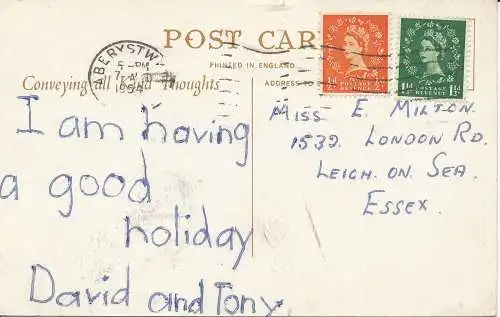 POST CAR
PRINTED IN ENGLAND
Conveying all Good Thoughts
ADDRESS TO
ABERYSTW
5 - PM
1954
½D POSTAGE REVENUE ½D
1½D POSTAGE REVENUE 1½D
I am having
a good
holiday
David and Tony
MISS E. MILTON.
1532. LONDON RD.
LEIGH. ON. SEA.
ESSEX.